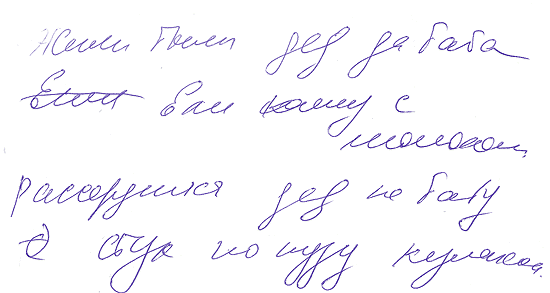 Жили были дед да баба
Ели Ели кашу с
молоком
рассердился дед на бабу
стук по пузу кулаком.